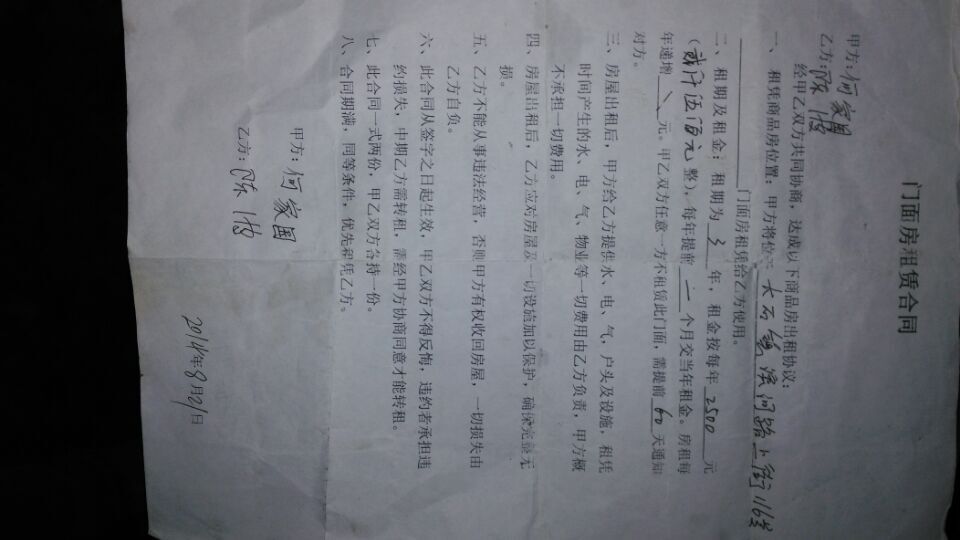 门面房租赁合同
甲方：何家国
乙方：陈
经甲乙双方共同协商，达成以下商品房出租协议：
一、租赁商品房位置：甲方将位于 大石镇滨河路上街116号
门面房租赁给乙方使用。
二、租期及租金：租期为 3 年，租金按每年 2500 元
（贰仟伍佰元整），每年提前 一 个月交当年租金。房租每
年递增 \ 元。甲乙双方任意一方不租赁此门面，需提前 60 天通知
对方。
三、房屋出租后，甲方给乙方提供水、电、气，户头及设施，租凭
时间产生的水、电、气、物业等一切费用由乙方负责，甲方概
不承担一切费用。
四、房屋出租后，乙方应对房屋及一切设施加以保护，确保完整无
损。
五、乙方不能从事违法经营，否则甲方有权收回房屋，一切损失由
乙方自负。
六、此合同从签字之日起生效，甲乙双方不得反悔，违约者承担违
约损失，中期乙方需转租，需经甲方协商同意才能转租。
七、此合同一式两份，甲乙双方各持一份。
八、合同期满，同等条件，优先租凭乙方。
甲方：何家国
乙方：陈
2014年8月21日